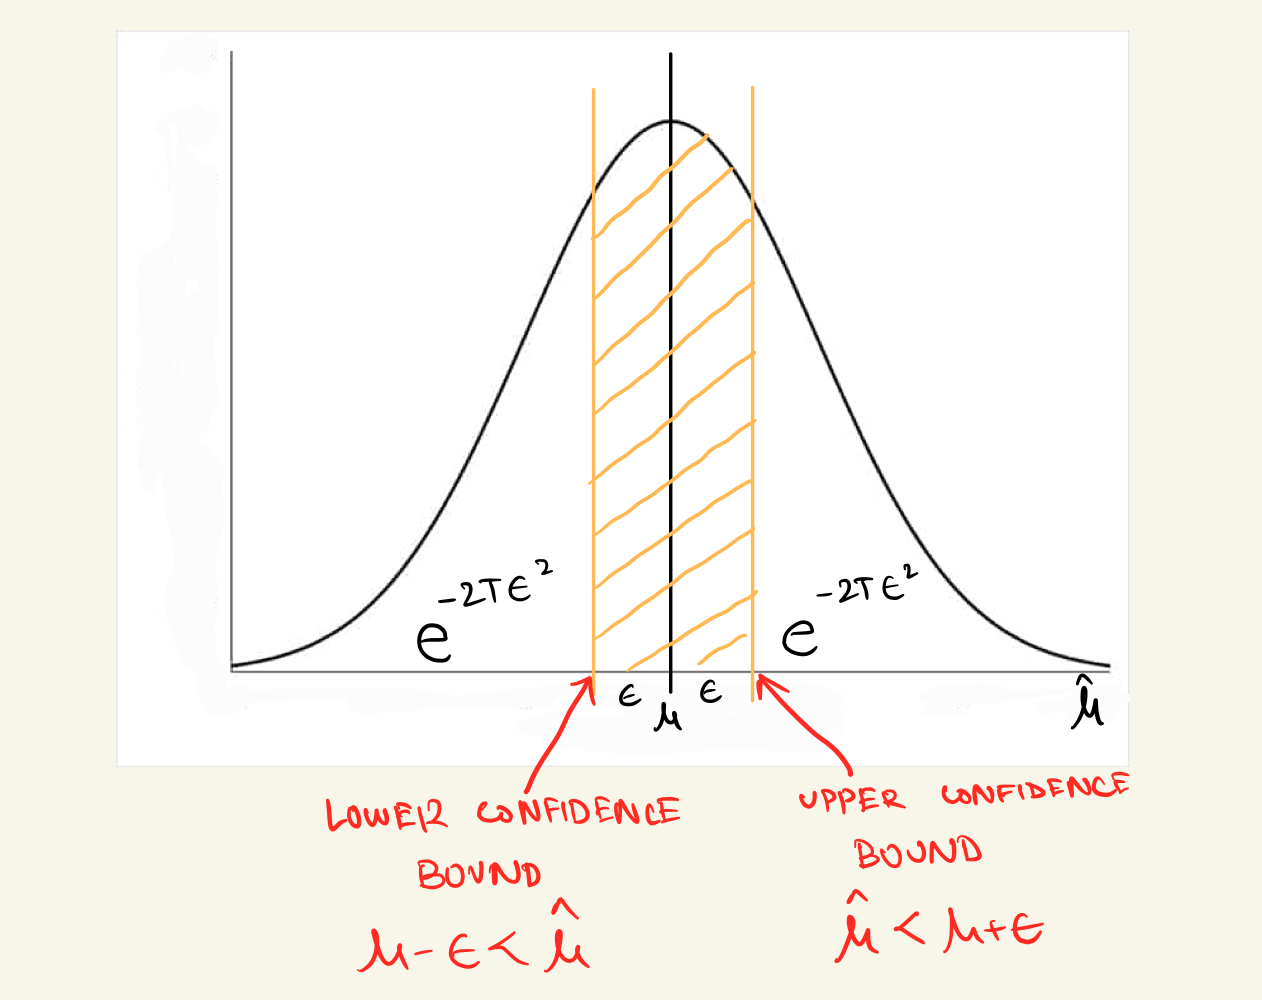 e^{-2Tϵ^2}
e^{-2Tϵ^2}
ϵ μ ϵ
μ̂
LOWER CONFIDENCE
BOUND
μ - ϵ < μ̂
UPPER CONFIDENCE
BOUND
μ̂ < μ+ϵ